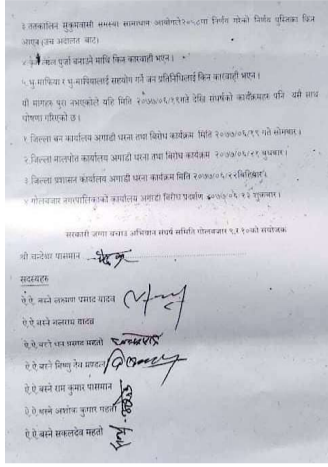 ३ तत्कालिन सुकुमवासी समस्या समाधान आयोगले२०५८मा निर्णय गरेको निर्णय पुस्तिका किन
भाएन (उच्च अदालत बाट)
पुर्जा बनाउने माथि किन कारवाही भएन ।
५ भु-माफिया र भु-माफियालाई सहयोग गर्ने जन प्रतिनिधिलाई किन कारवाही भएन ।
यी मागहरु पुरा नभएकोले यहि मिति २०७७/०६/१९गते देखि संघर्षको कार्यक्रमहरु पनि यसै साथ
घोषणा गरिएको छ ।
१ जिल्ला वन कार्यालय अगाडी धरना तथा विरोध कार्यक्रम मिति २०७७/०६/१९ गते सोमबार ।
२ जिल्ला मालपोत कार्यालय अगाडी धरना तथा बिरोध कार्यक्रम २०७७/०६/२१ बुधबार ।
३ जिल्ला प्रशासन कार्यालय अगाडी धरना कार्यक्रम मिति २०७७/०६/२२बिहिबार ।
४ गोलबजार नगरपालिकाको कार्यालय अगाडी बिरोध प्रदर्शन २०७७/०६/२३ शुक्रबार ।
सरकारी जग्गा बचाउ अभियान संघर्ष समिति गोलबजार ९,१ १०को संयोजक
श्री चन्देश्वर पासमान
सदस्यहरु
ऐ.ऐ.बस्ने लक्ष्मण प्रसाद यादव
ऐ.ऐ बस्ने यादव
ऐ.ऐ.बस्ने धन प्रसाद महतो
ऐ.ऐ.बस्ने बिष्णु देव मण्डल
ऐ.ऐ.बस्ने राम कुमार पासमान
ऐ.ऐ.बस्ने अशोक कुमार महतो
ऐ.ऐ.बस्ने सकलदेव महतो